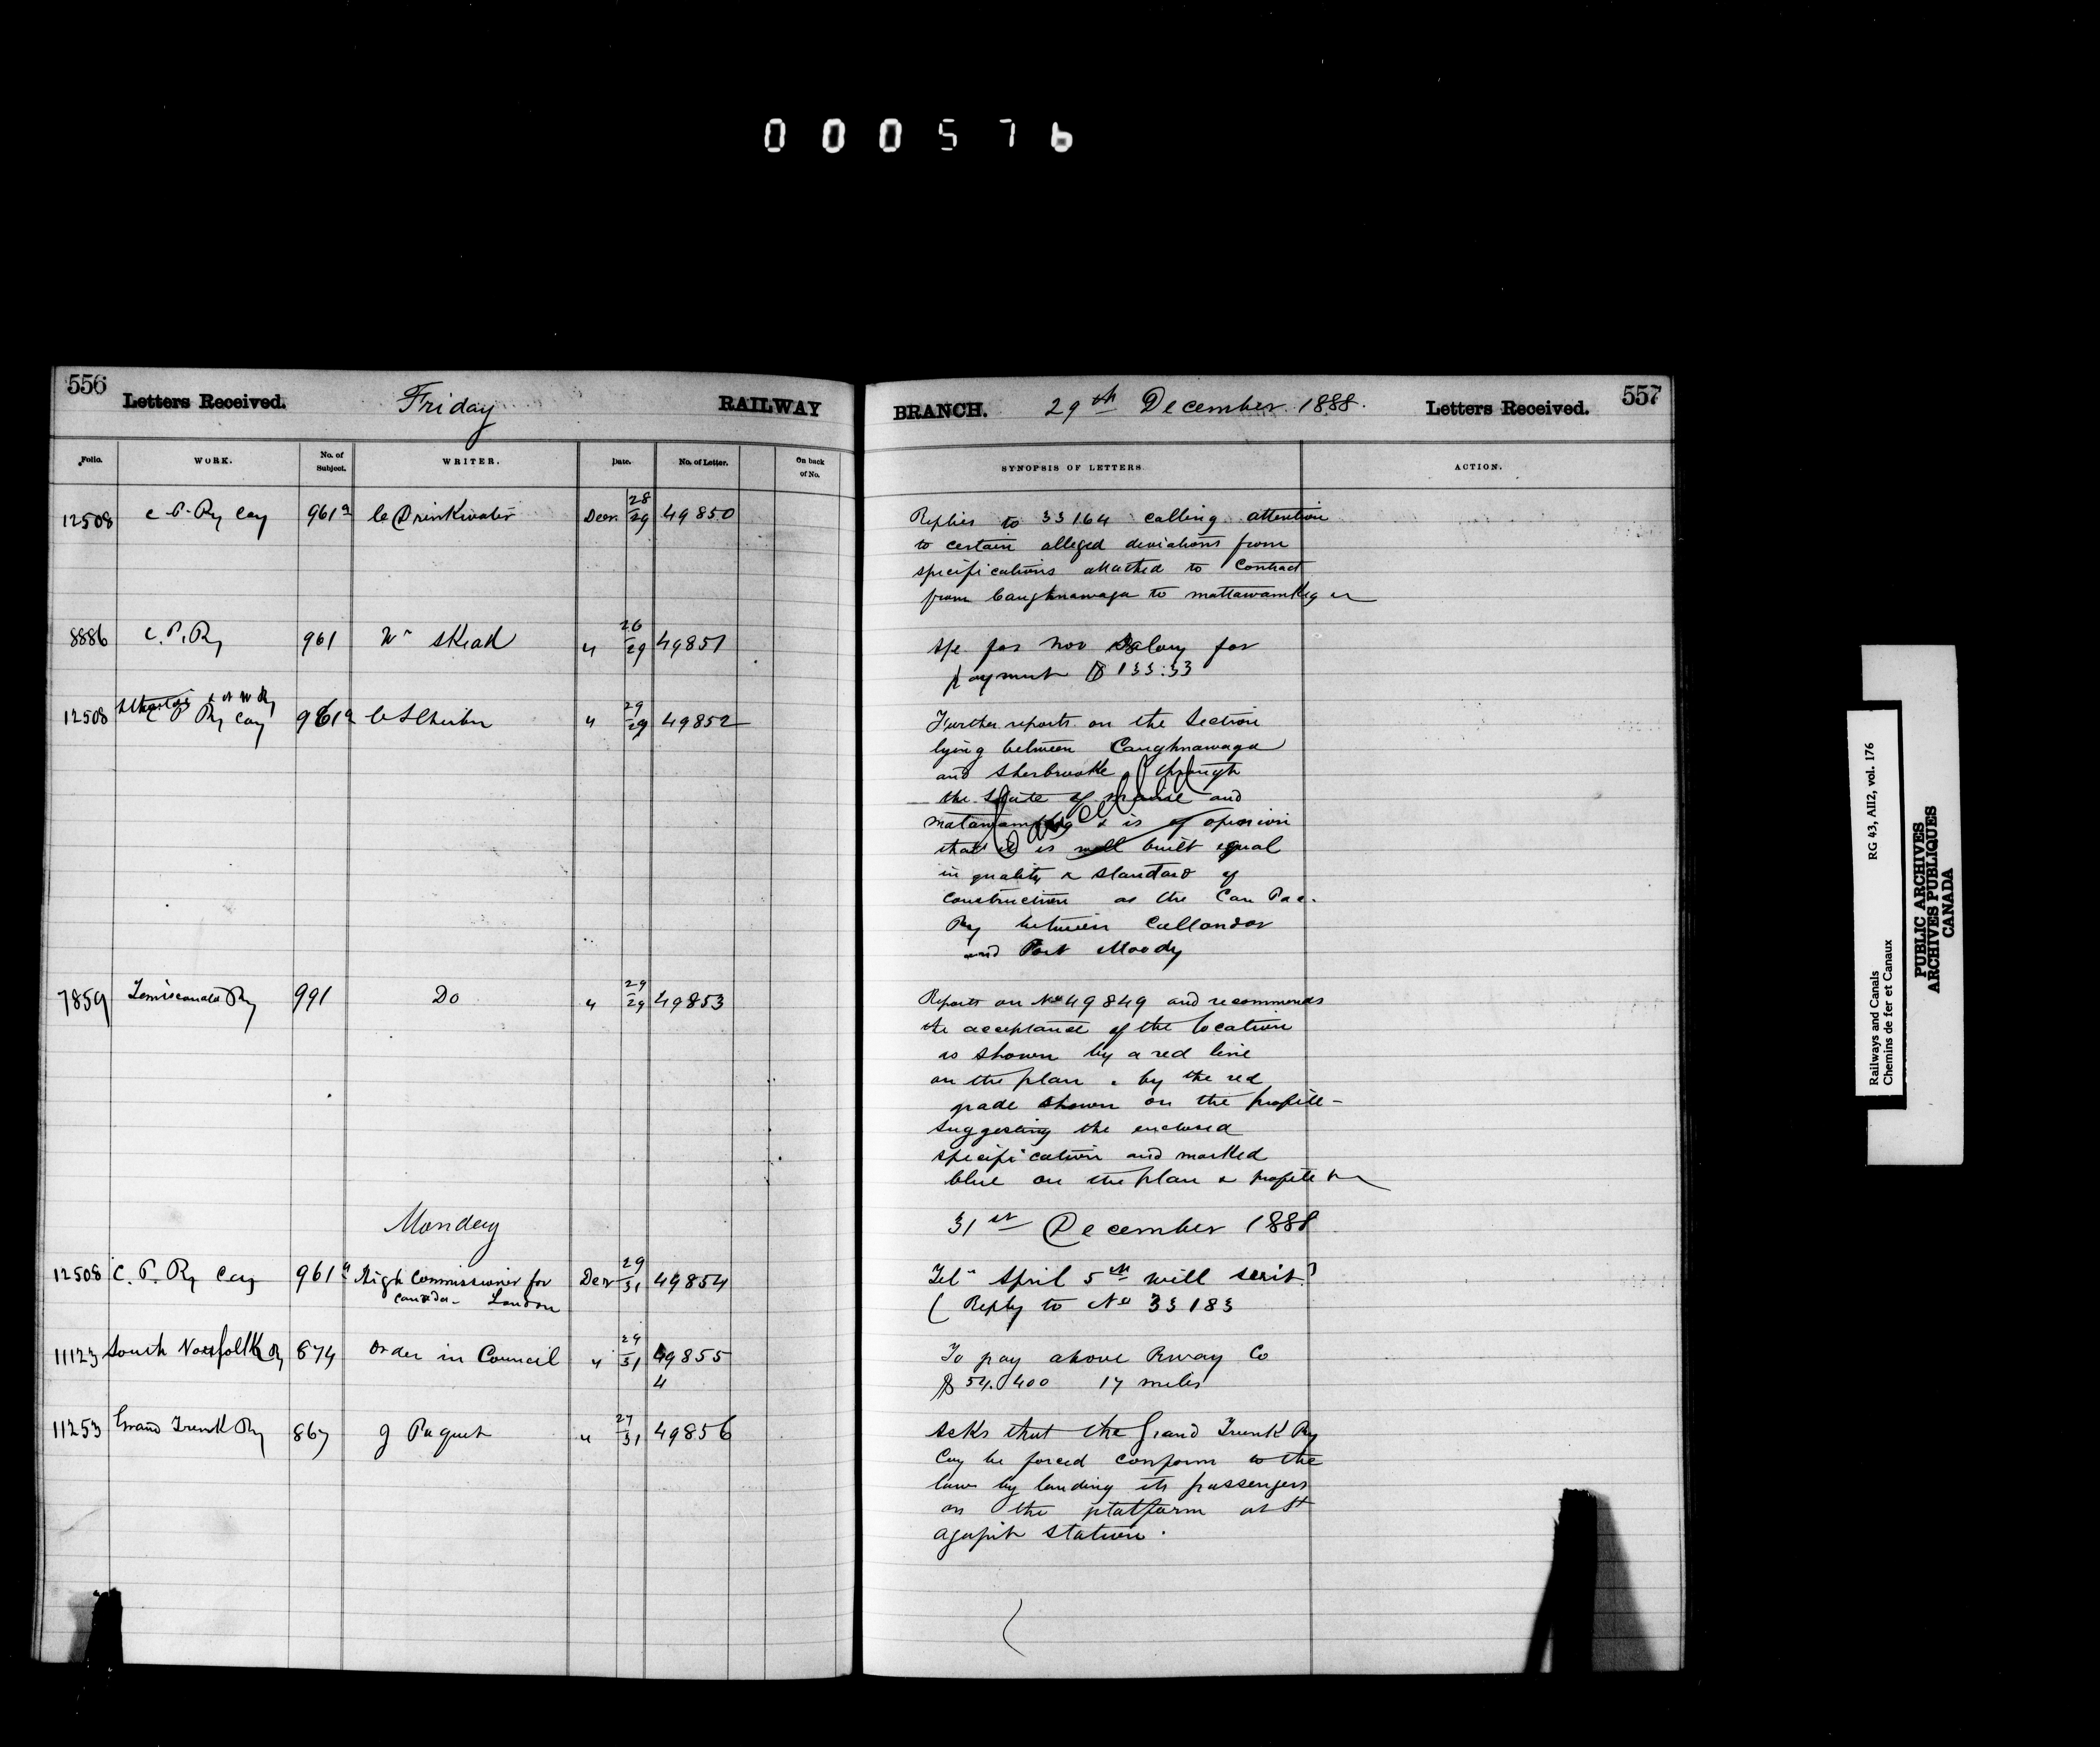 000576
556 Letters Received. Friday RAILWAY
BRANCH. 29th December 1888. Letters Received. 557
Folio. WORK. No. of Subject. WRITER. Date. No. of Letter. On back of No.
SYNOPSIS OF LETTERS. ACTION.
12508 C. P. Ry Coy 961a C Drinkwater Decr. 28/29 49850
Replies to 33164 calling attention
to certain alleged deviations from
specifications attached to Contract
from Caughnawaga to Mattawamkeg
8886 C. P. Ry 961 Wm Skead " 26/29 49851
for Nov Salary for
payment $133.33
& N W Ry
12508 C P Ry Coy 961a " 29/29 49852
Further reports on the Section
lying between Caughnawaga
and Sherbrooke & through
the State of Maine and
Matawamkeg & is of opinion
that it is well built equal
in quality & standard of
construction as the Can Pac.
Ry between Callandar
and Port Moody
Cancelled
7859 Temiscouata Ry 991 Do " 29/29 49853
Reports on No 49849 and recommends
the acceptance of the location
as shown by a red line
on the plan & by the red
grade shown on the profile -
suggesting the enclosed
specification and marked
blue on the plan & profile
Monday 31st December 1888
12508 C. P. Ry Coy 961a High Commissioner for Decr 29/31 49854
Canada - London
Telm April 5th will suit
(Reply to No 33183
11123 South Norfolk Ry 874 Order in Council " 29/31 49855
4
To pay above Rway Co
$54.400 17 miles
11253 Grand Trunk Ry 867 J Paquet " 27/31 49856
Asks that the Grand Trunk Ry
Coy be forced conform to the
law by landing its passengers
on the platform at St
Agapit Station.
Railways and Canals RG 43, AII2, vol. 176
Chemins de fer et Canaux
PUBLIC ARCHIVES
ARCHIVES PUBLIQUES
CANADA